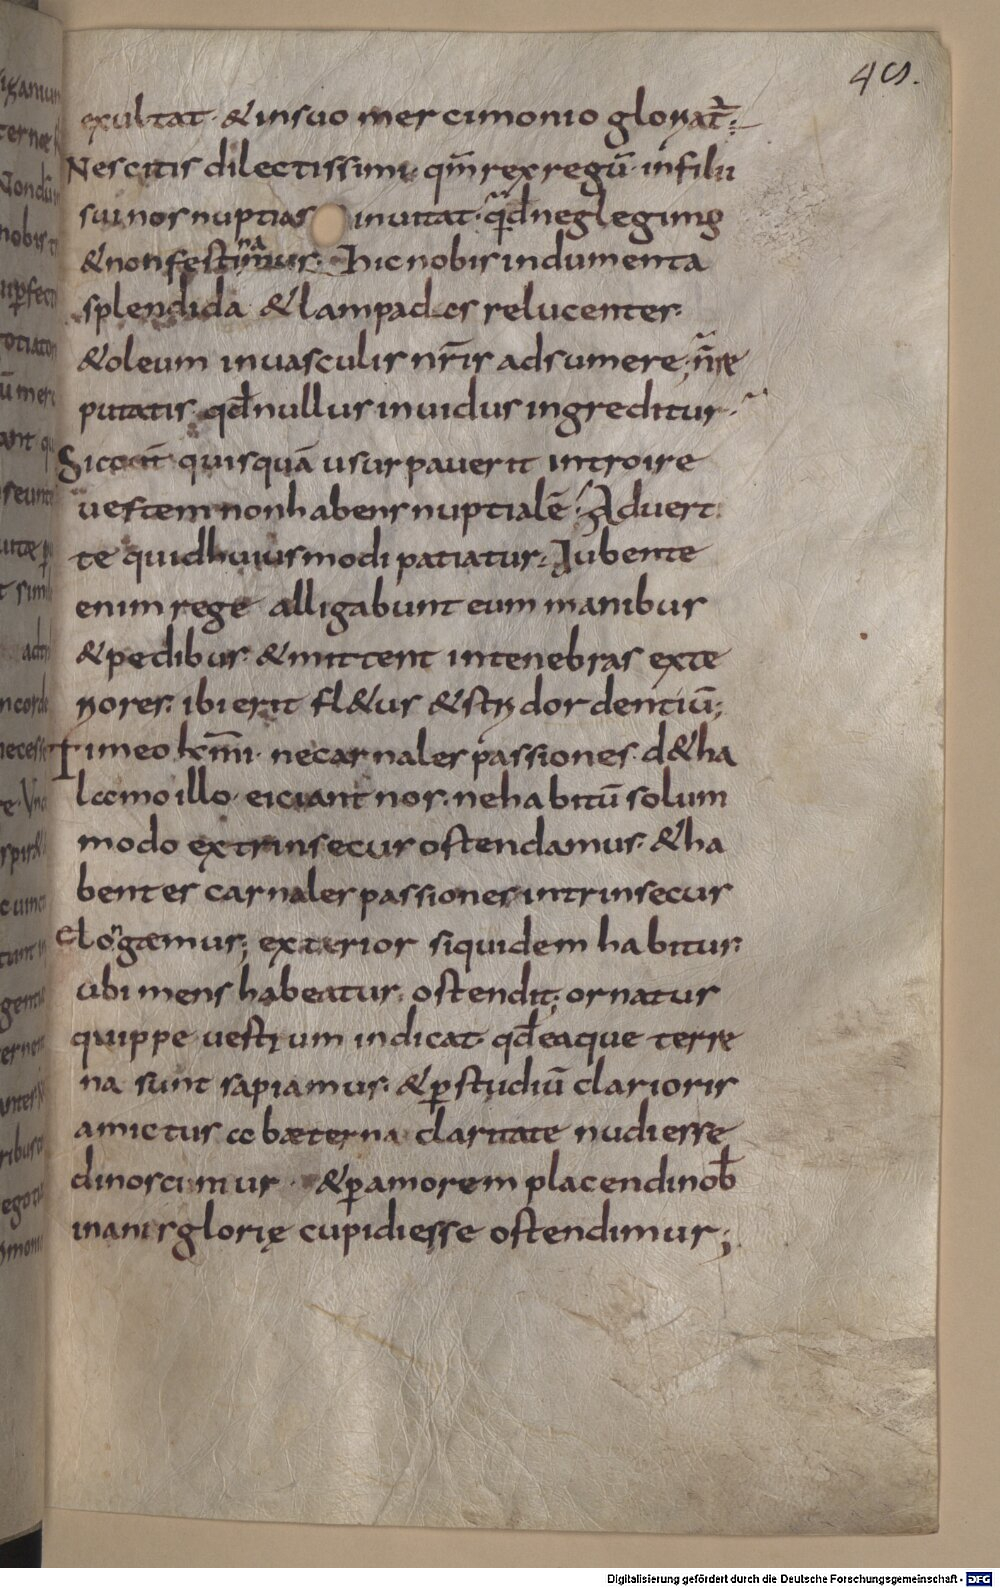 49.
exultat · & in suo mercimonio gloriat̄:
Nescitis dilectissimi · qm̄ rex regū · in filii
sui nos nuptias inuitat · qđ neglegimus
& non festinamus · Hic nobis indumenta
splendida & lampades relucentes ·
& oleum in uasculis nr̄is adsumere; nre
putatis · qđ nullus inuidus ingreditur ·
Sic cū quisquā usurpauerit introire
uestem non habens nuptialē · Aduert
te quid huiusmodi patiatur · Iubente
enim rege alligabunt eum manibus
& pedibus · & mittent in tenebras exte
riores · ibi erit fl&us & stridor dentiū;
Timeo km̄i · ne carnales passiones · d& ha
lamo illo · eiciant nos · ne habitū solum
modo extrinsecus ostendamus · & ha
bentes carnales passiones intrinsecus
elongæmus; exterior siquidem habitus ·
ubi mens habeatur · ostendit; ornatus
quippe uestium indicat · qđ ea que terre
na sunt sapiamus · & p̱ studiū clarioris
amictus ab æterna claritate nudi esse
dinoscimur · & p̱ amorem placendi nob̄
inanis glorię cupidi esse ostendimur;
Digitalisierung gefördert durch die Deutsche Forschungsgemeinschaft - DFG